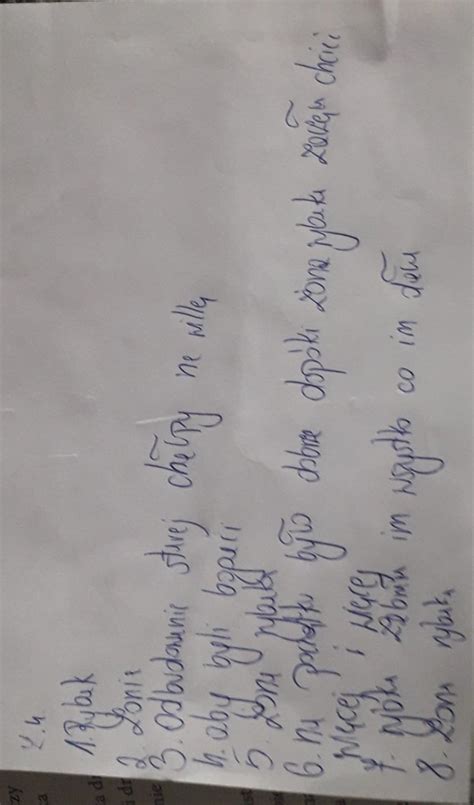 Z.4
1. Rybak
2. Żonie
3. odbudowanie starej chałpy na willę
4. aby byli bogaci
5. Żona rybaka
6. na początku było dobrze dopóki żona rybaka zaczęła chcieć
więcej i więcej
7. rybka zabrała im wszystko co im dała
8. Żona rybaka